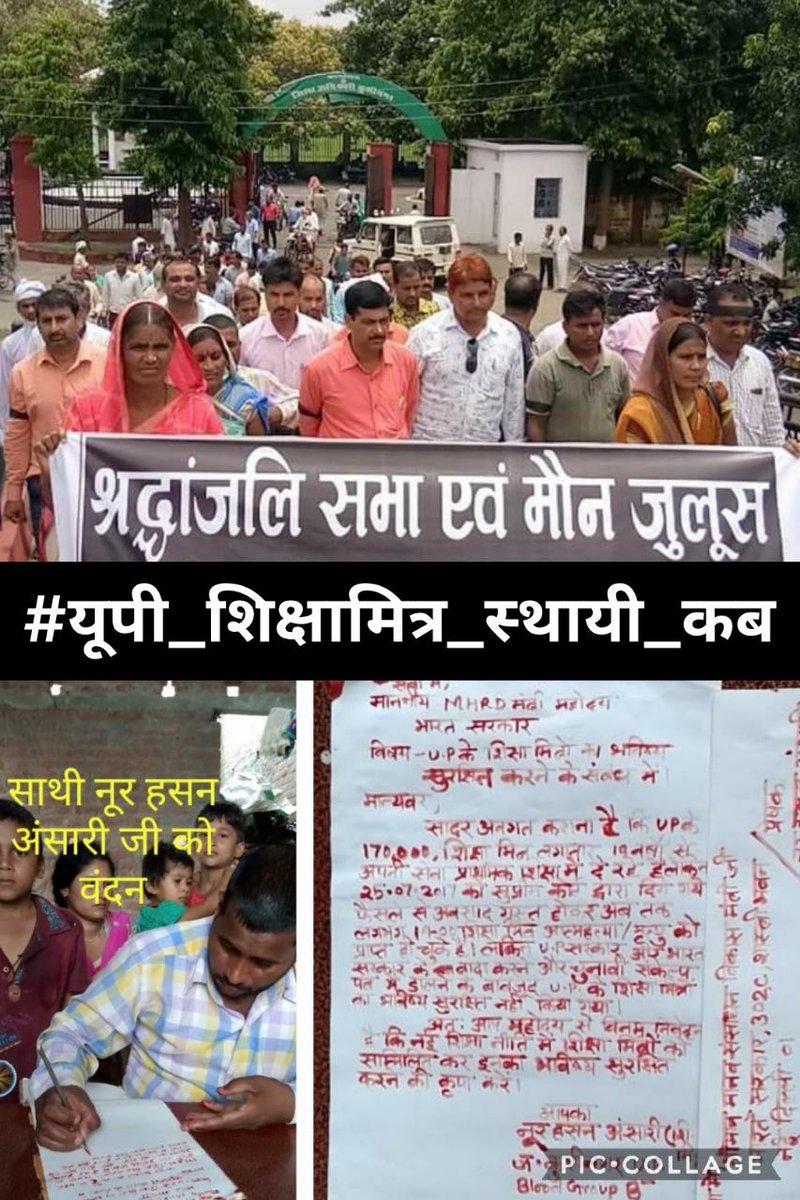 श्रद्धांजलि सभा एवं मौन जुलूस
#यूपी_शिक्षामित्र_स्थायी_कब
साथी नूर हसन
अंसारी जी को
वंदन
माननीय MHRD मंत्री महोदय
भारत सरकार
विषय - U.P के शिक्षा मित्रों का भविष्य
सुरक्षित करने के संबंध में।
मान्यवर,
सादर अवगत कराना है कि UP के
170,000, शिक्षा मित्र लगातार, 19 वर्षों से
अपनी सेवा प्राथमिक शिक्षा में दे रहे
25-07-2017 को सुप्रीम कोर्ट द्वारा दिए गये
फैसले से अवसाद ग्रस्त होकर अब तक
लगभग शिक्षा मित्र आत्महत्या/मृत्यु को
प्राप्त हो चुके हैं। U.P सरकार और भारत
सरकार के वादा करने और चुनावी संकल्प
पत्र में डालने के बावजूद U.P. के शिक्षा मित्रों
का भविष्य सुरक्षित नहीं किया गया।
अतः आप महोदय से विनम्र निवेदन
है कि नई शिक्षा नीति में शिक्षा मित्रों को
सम्मिलित कर इनका भविष्य सुरक्षित
करने की कृपा करें।
आपका
नूर हसन अंसारी
Blood Group B
प्रेषक
श्रीमान मानव संसाधन विकास मंत्री जी
भारत सरकार, 302C, शास्त्री भवन
नई दिल्ली
PIC•COLLAGE